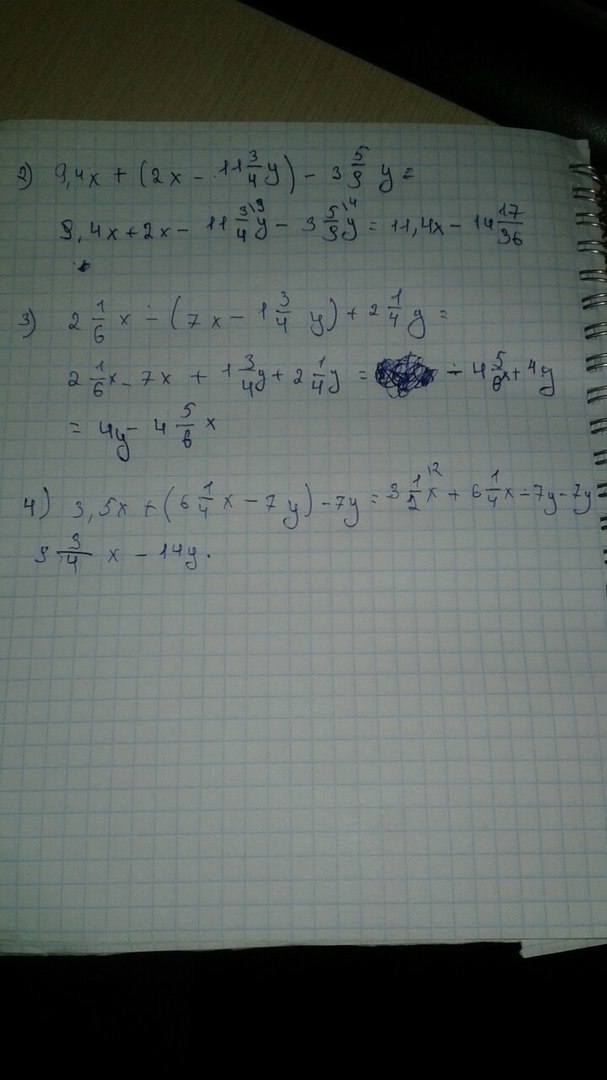 2) 9,4x + (2x - 11 3/4 y) - 3 5/9 y =
9,4x + 2x - 11 3/4 \9 y - 3 5/9 \4 y = 11,4x - 14 17/36
3) 2 1/6 x - (7x - 1 3/4 y) + 2 1/4 y =
2 1/6 x - 7x + 1 3/4 y + 2 1/4 y = - 4 5/6 x + 4y
= 4y - 4 5/6 x
4) 3,5x + (6 1/4 x - 7y) - 7y = 3 1/2 \2 x + 6 1/4 x - 7y - 7y =
9 3/4 x - 14y.